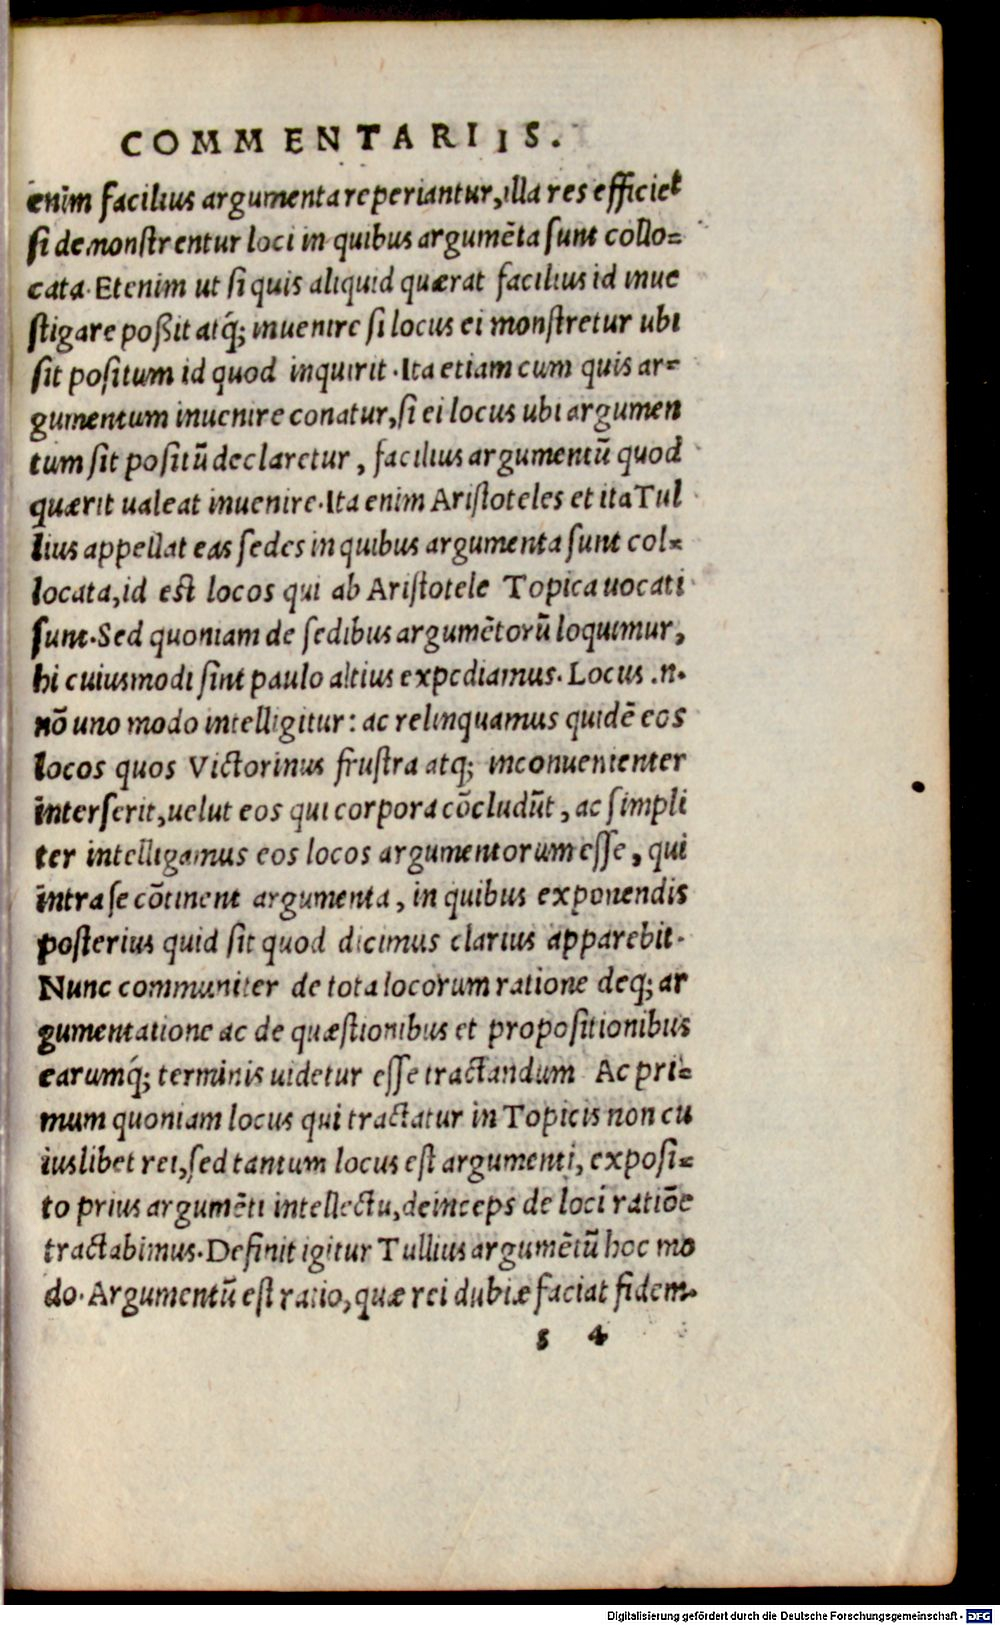 COMMENTARIIS.
enim facilius argumenta reperiantur, illa res efficiet
si demonstrentur loci in quibus argumẽta sunt collo=
cata. Etenim ut si quis aliquid quærat facilius id inue
stigare poßit atq́; inuenire si locus ei monstretur ubi
sit positum id quod inquirit. Ita etiam cum quis ar=
gumentum inuenire conatur, si ei locus ubi argumen
tum sit positũ declaretur, facilius argumentũ quod
quærit ualeat inuenire. Ita enim Aristoteles et ita Tul
lius appellat eas sedes in quibus argumenta sunt col=
locata, id est locos qui ab Aristotele Topica uocati
sunt. Sed quoniam de sedibus argumẽtorũ loquimur,
hi cuiusmodi sint paulo altius expediamus. Locus .n.
nõ uno modo intelligitur: ac relinquamus quidẽ eos
locos quos Victorinus frustra atq; inconuenienter
interserit, uelut eos qui corpora cõcludũt, ac simpli
ter intelligamus eos locos argumentorum esse, qui
intra se cõtinent argumenta, in quibus exponendis
posterius quid sit quod dicimus clarius apparebit.
Nunc communiter de tota locorum ratione deq; ar
gumentatione ac de quæstionibus et propositionibus
earumq́; terminis uidetur esse tractandum Ac pri=
mum quoniam locus qui tractatur in Topicis non cu
iuslibet rei, sed tantum locus est argumenti, exposi=
to prius argumẽti intellectu, deinceps de loci ratiõe
tractabimus. Definit igitur Tullius argumẽtũ hoc mo
do. Argumentũ est ratio, quæ rei dubiæ faciat fidem.
s 4
Digitalisierung gefördert durch die Deutsche Forschungsgemeinschaft - DFG